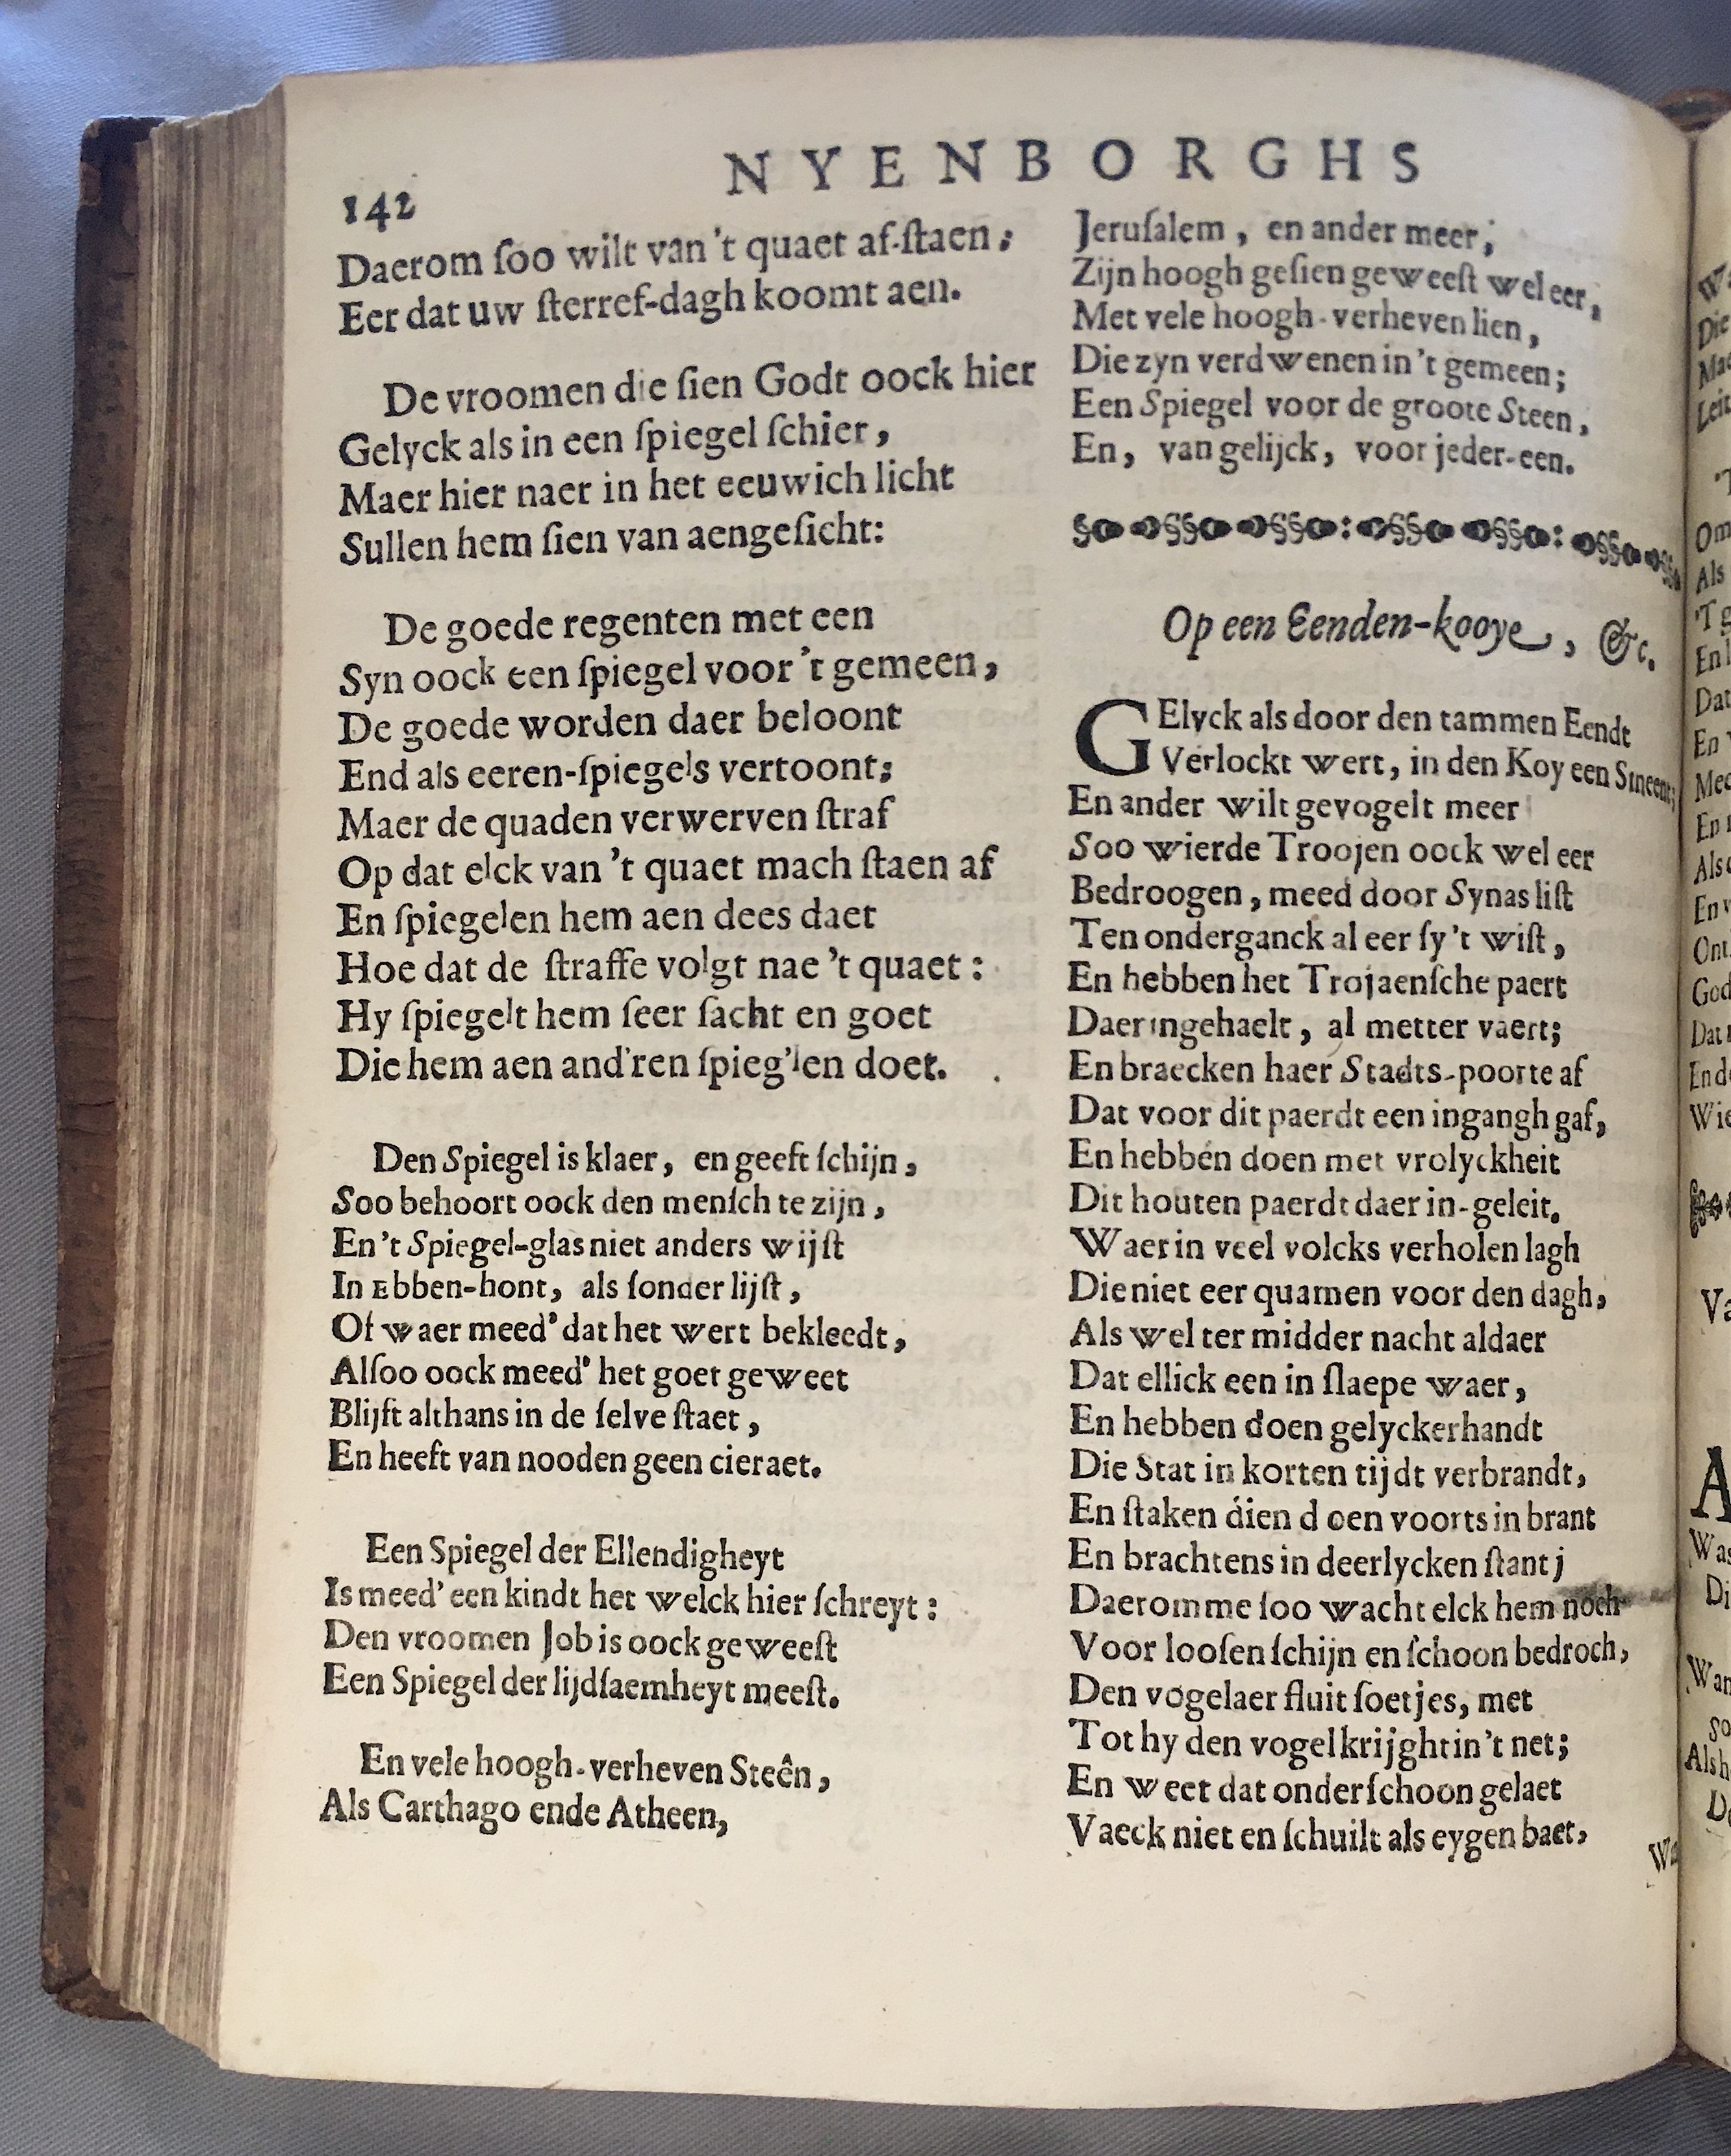 NYENBORGHS
142
Daerom ſoo wilt van 't quaet af-ſtaen;
Eer dat uw ſterref-dagh koomt aen.
De vroomen die ſien Godt oock hier
Gelyck als in een ſpiegel ſchier,
Maer hier naer in het eeuwich licht
Sullen hem ſien van aengeſicht:
De goede regenten met een
Syn oock een ſpiegel voor 't gemeen,
De goede worden daer beloont
End als eeren-ſpiegels vertoont;
Maer de quaden verwerven ſtraf
Op dat elck van 't quaet mach ſtaen af
En ſpiegelen hem aen dees daet
Hoe dat de ſtraffe volgt nae 't quaet:
Hy ſpiegelt hem ſeer ſacht en goet
Die hem aen and'ren ſpieg'len doet.
Den Spiegel is klaer, en geeft ſchijn,
Soo behoort oock den menſch te zijn,
En 't Spiegel-glas niet anders wijſt
In Ebben-hont, als ſonder lijſt,
Of waer meed' dat het wert bekleedt,
Alſoo oock meed' het goet geweet
Blijft althans in de ſelve ſtaet,
En heeft van nooden geen cieraet.
Een Spiegel der Ellendigheyt
Is meed' een kindt het welck hier ſchreyt:
Den vroomen Job is oock geweeſt
Een Spiegel der lijdſaemheyt meeſt.
En vele hoogh-verheven Steên,
Als Carthago ende Atheen,
Jeruſalem, en ander meer;
Zijn hoogh geſien geweeſt wel eer,
Met vele hoogh-verheven lien,
Die zyn verdwenen in 't gemeen;
Een Spiegel voor de groote Steen,
En, van gelijck, voor jeder-een.
Op een Eenden-kooye, &c.
GElyck als door den tammen Eendt
Verlockt wert, in den Koy een Smeent;
En ander wilt gevogelt meer
Soo wierde Troojen oock wel eer
Bedroogen, meed door Synas liſt
Ten onderganck al eer ſy 't wiſt,
En hebben het Trojaenſche paert
Daer ingehaelt, al metter vaert;
En braecken haer Stadts-poorte af
Dat voor dit paerdt een ingangh gaf,
En hebben doen met vrolyckheit
Dit houten paerdt daer in-geleit.
Waer in veel volcks verholen lagh
Die niet eer quamen voor den dagh,
Als wel ter midder nacht aldaer
Dat ellick een in ſlaepe waer,
En hebben doen gelyckerhandt
Die Stat in korten tijdt verbrandt,
En ſtaken dien doen voorts in brant
En brachtens in deerlycken ſtantj
Daeromme ſoo wacht elck hem noch
Voor looſen ſchijn en ſchoon bedroch,
Den vogelaer fluit ſoetjes, met
Tot hy den vogel krijght in 't net;
En weet dat onder ſchoon gelaet
Vaeck niet en ſchuilt als eygen baet,